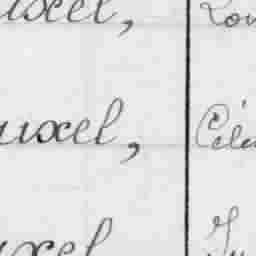 uxel, Lou
uxel, Céle
uxel